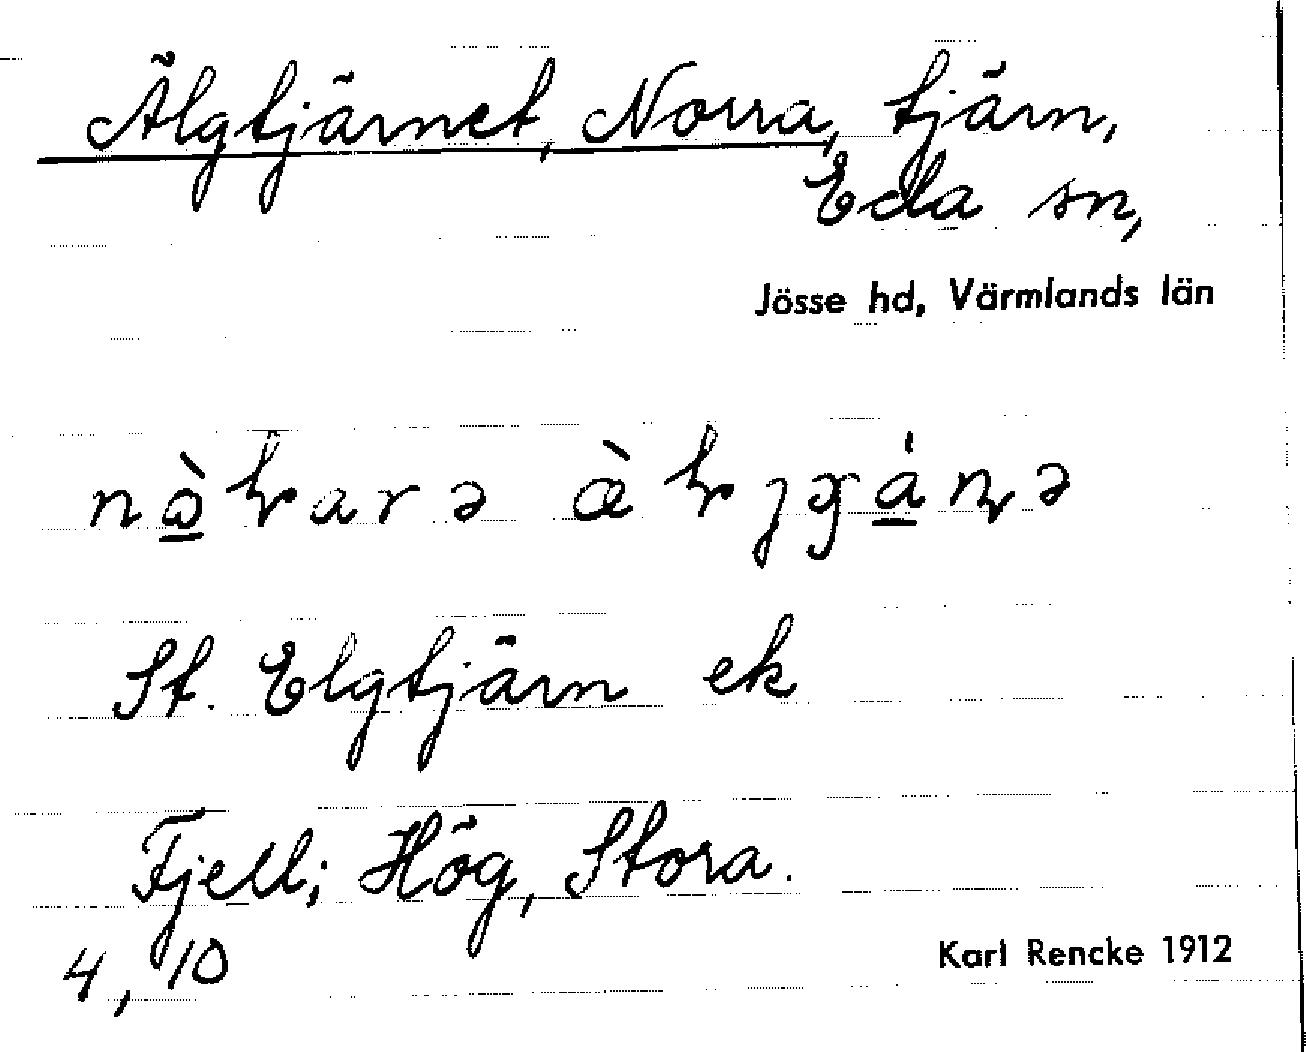 Älgtjärnet, Norra, tjärn,
Eda sn,
Jösse hd, Värmlands län
St. Elgtjärn ek
Fjell; Hög, Stora.
4, 10
Karl Rencke 1912